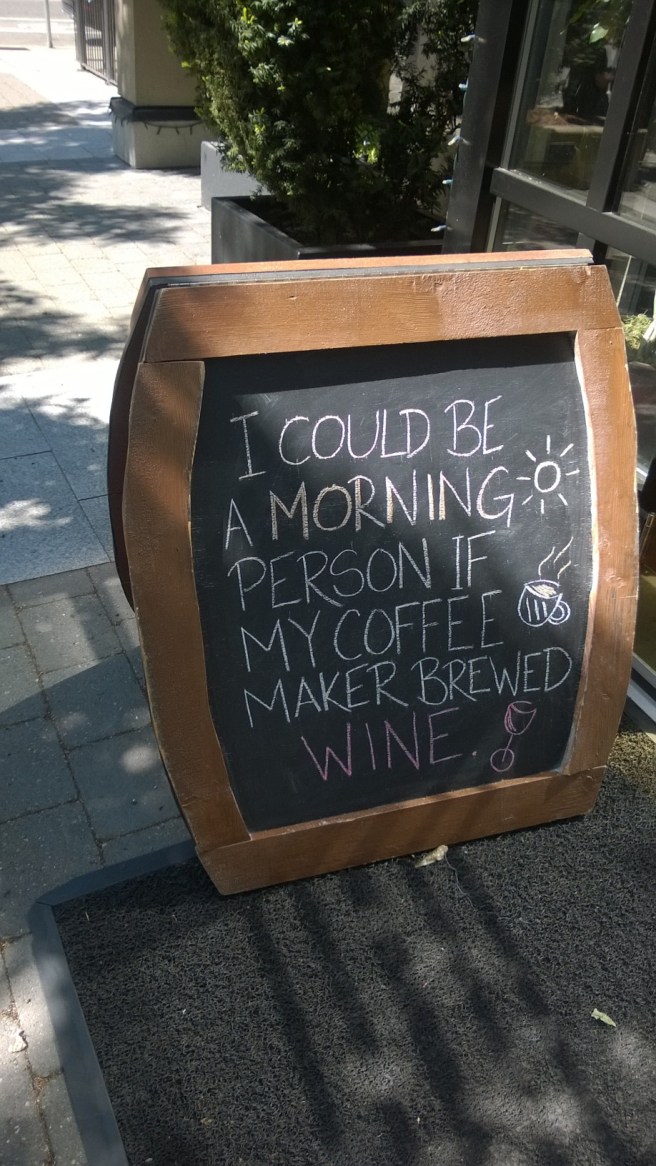 I COULD BE
A MORNING
PERSON IF
MY COFFEE
MAKER BREWED
WINE.